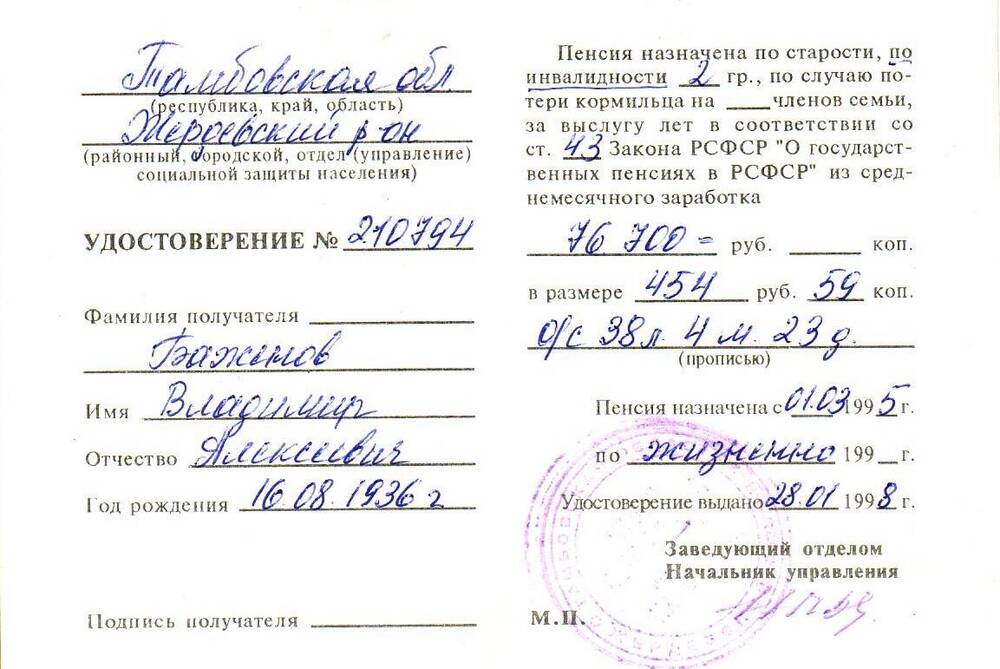 Тамбовская обл.
(республика, край, область)
Жердевский р-он
(районный, городской, отдел (управление)
социальной защиты населения)
УДОСТОВЕРЕНИЕ № 210794
Фамилия получателя
Баженов
Имя Владимир
Отчество Алексеевич
Год рождения 16.08.1936 г
Подпись получателя
Пенсия назначена по старости, по
инвалидности 2 гр., по случаю по-
тери кормильца на ____ членов семьи,
за выслугу лет в соответствии со
ст. 43 Закона РСФСР "О государст-
венных пенсиях в РСФСР" из сред-
немесячного заработка
76 700= руб. ____ коп.
в размере 454 руб. 59 коп.
о/с 38 л. 4 м. 23 д.
(прописью)
Пенсия назначена с 01.03 1995 г.
по жизненно 199_ г.
Удостоверение выдано 28.01 1998 г.
Заведующий отделом
Начальник управления
М.П.